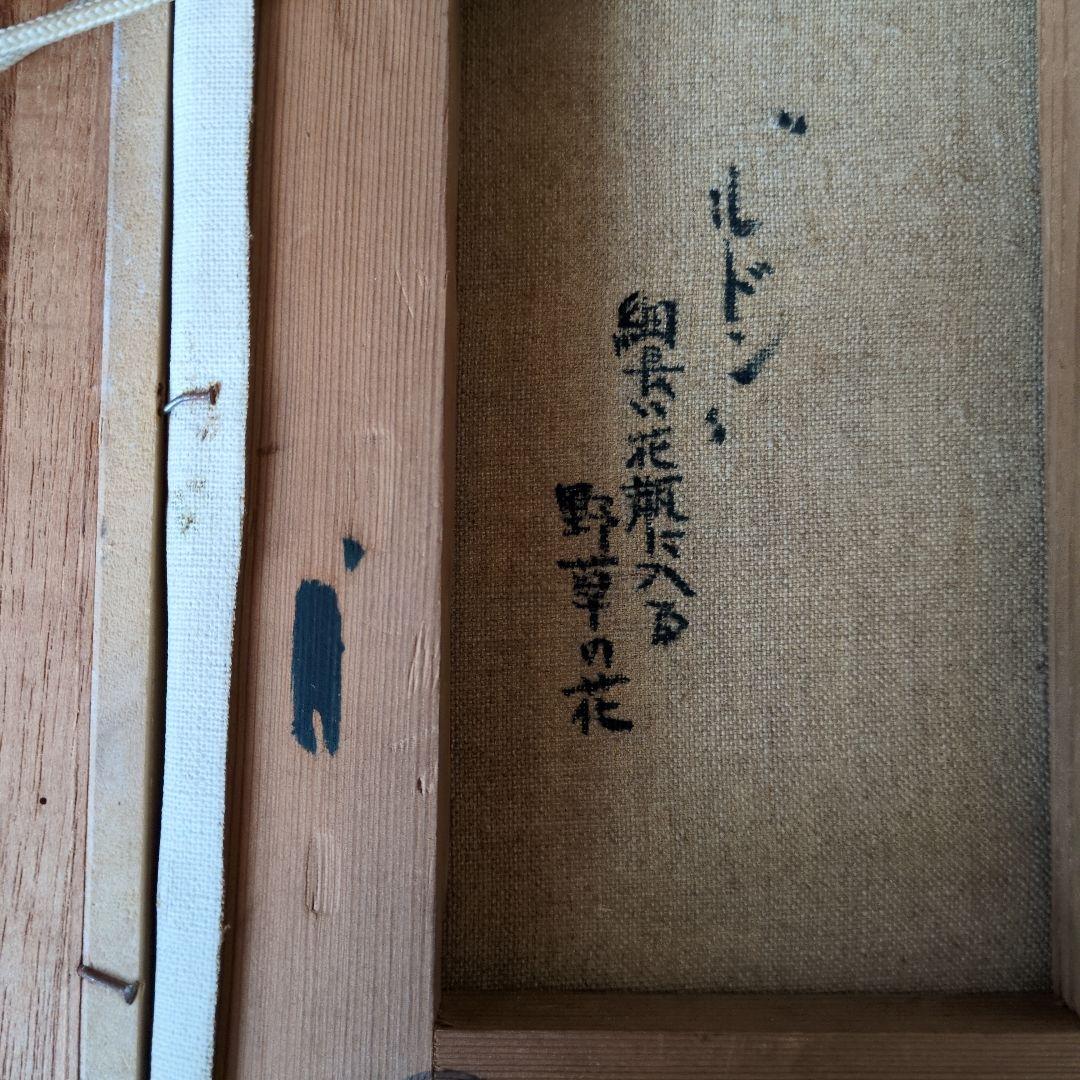 〝ルドン〟
細長い花瓶に入る
野草の花